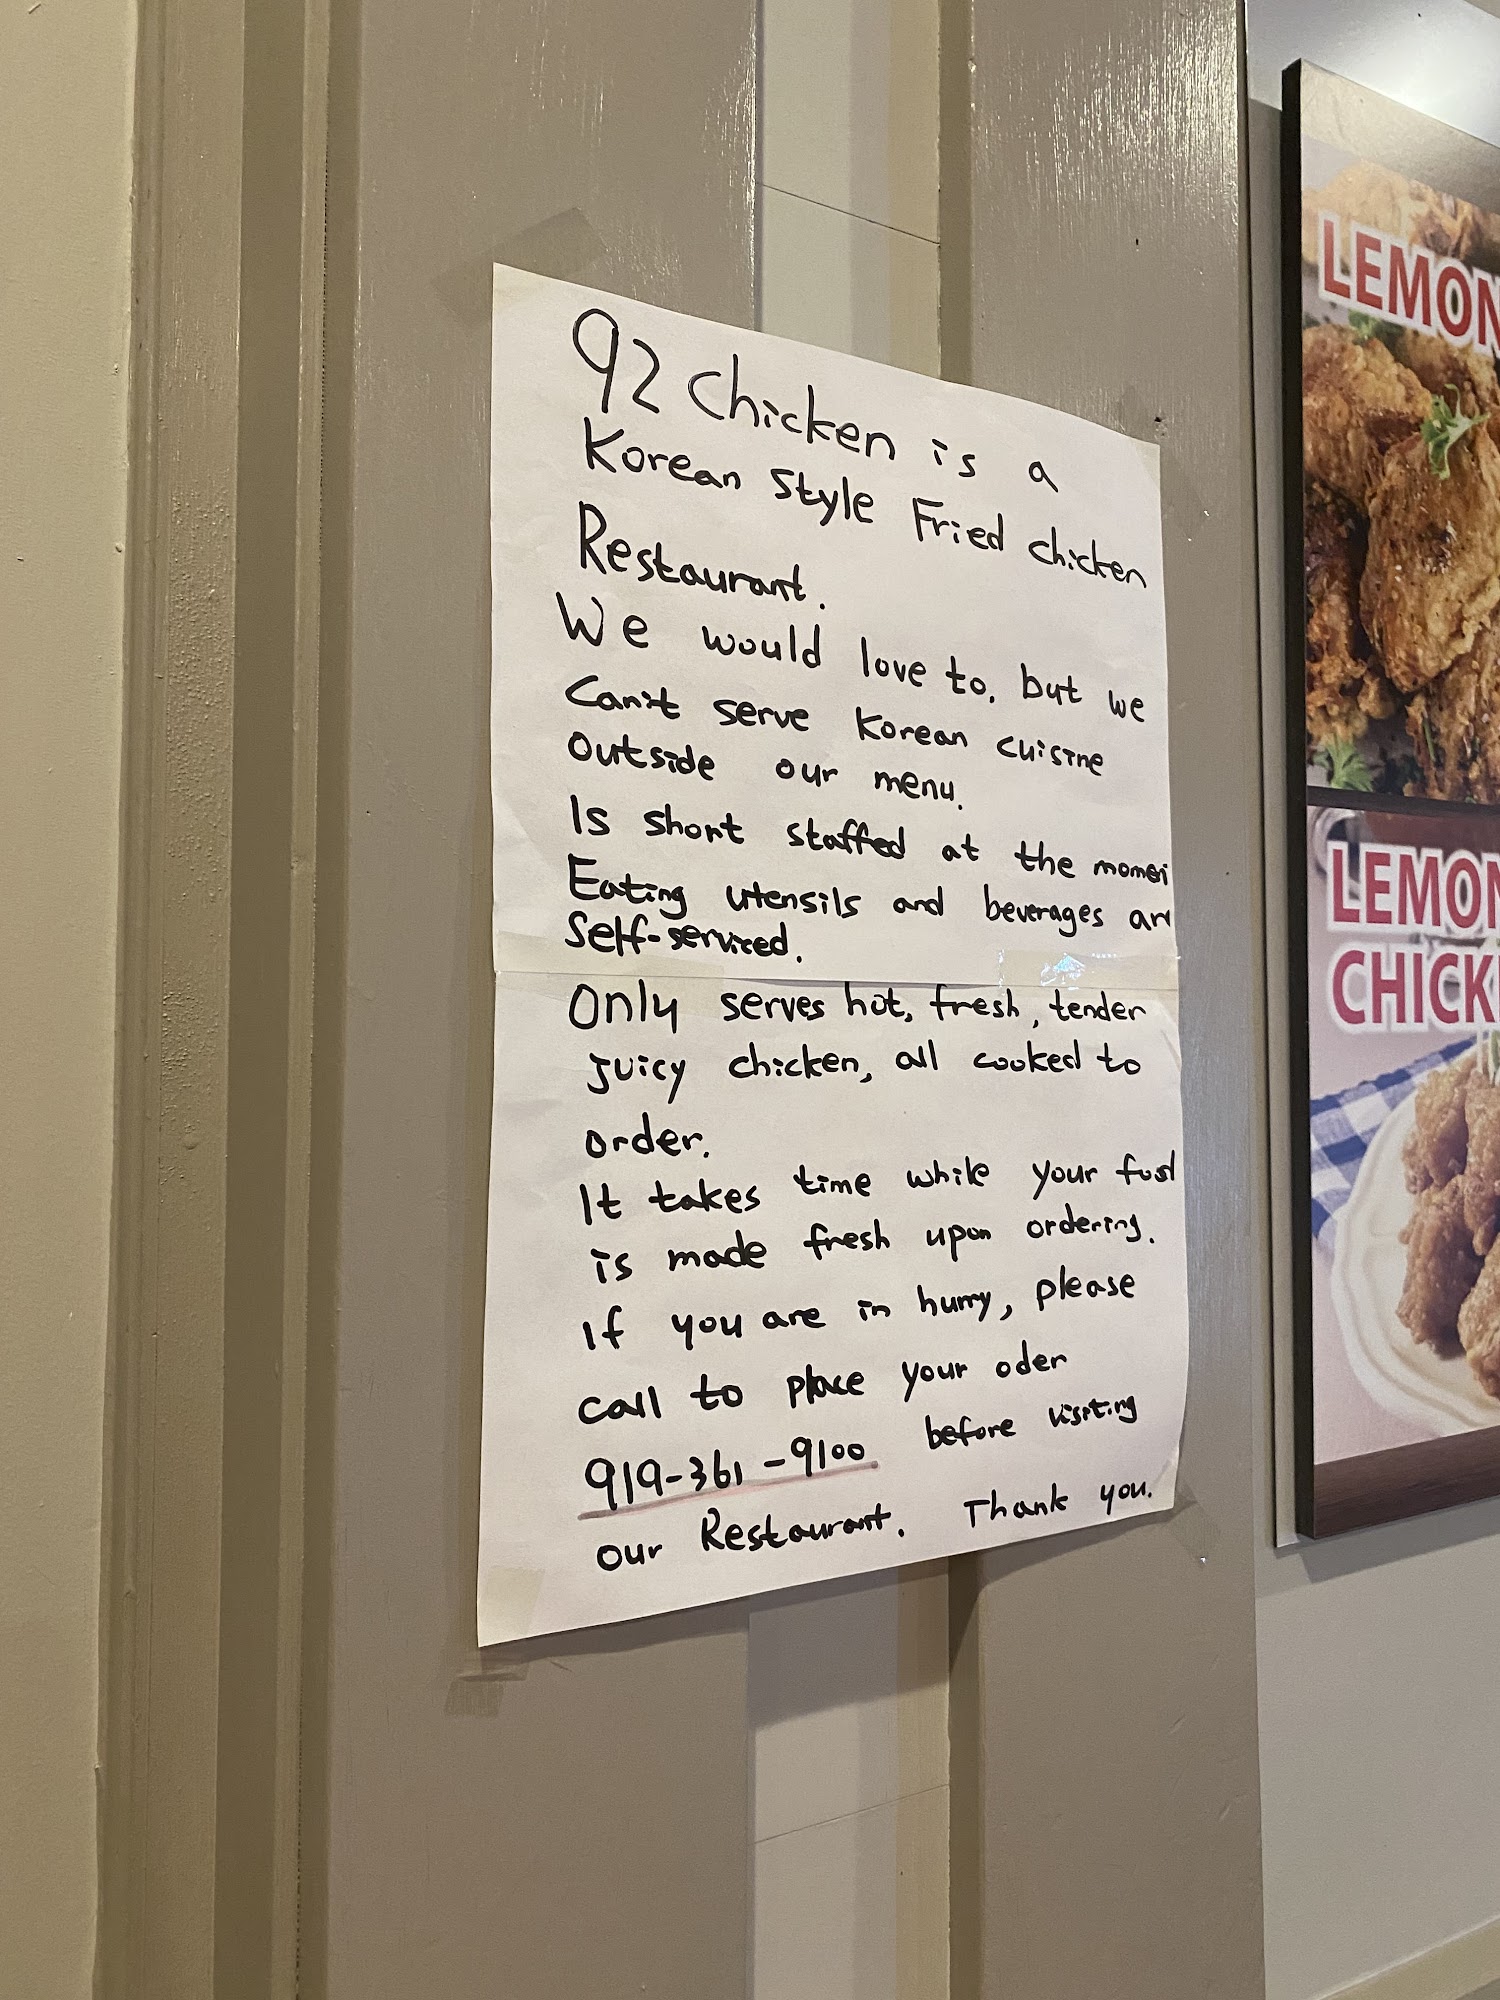 92 Chicken is a
Korean Style Fried chicken
Restaurant.
We would love to, but we
Can't serve Korean cuisine
outside our menu.
Is short staffed at the moment
Eating utensils and beverages are
Self-serviced.
Only serves hot, fresh, tender
juicy chicken, all cooked to
order.
It takes time while your food
is made fresh upon ordering.
If you are in hurry, please
call to place your oder
919-361-9100 before visiting
our Restaurant. Thank you.
LEMON
LEMON
CHICK